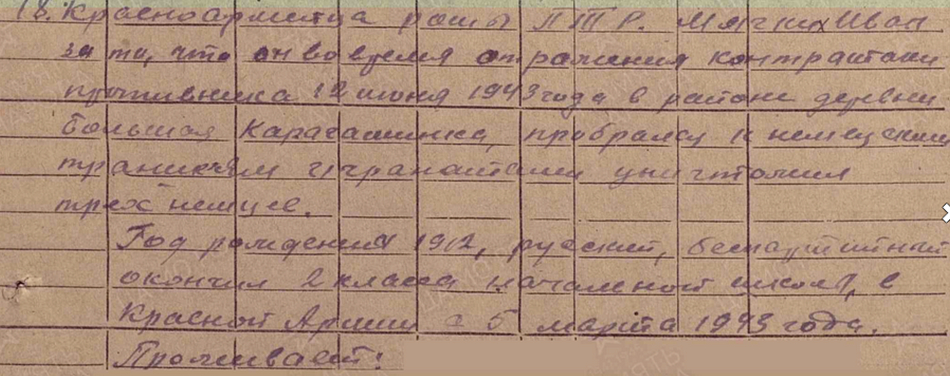 18. Красноармейца роты ПТР. Мягких Иван
за то, что он во время отражения контратаки
противника 12 июня 1943 года в районе деревни
большая Карагашинка, пробрался к немецким
траншеям и гранатами уничтожил
трех немцев.
Год рождения 1912, русский, беспартийный
окончил 2 класса начальной школы, в
Красной Армии с 5 марта 1943 года.
Проживает: